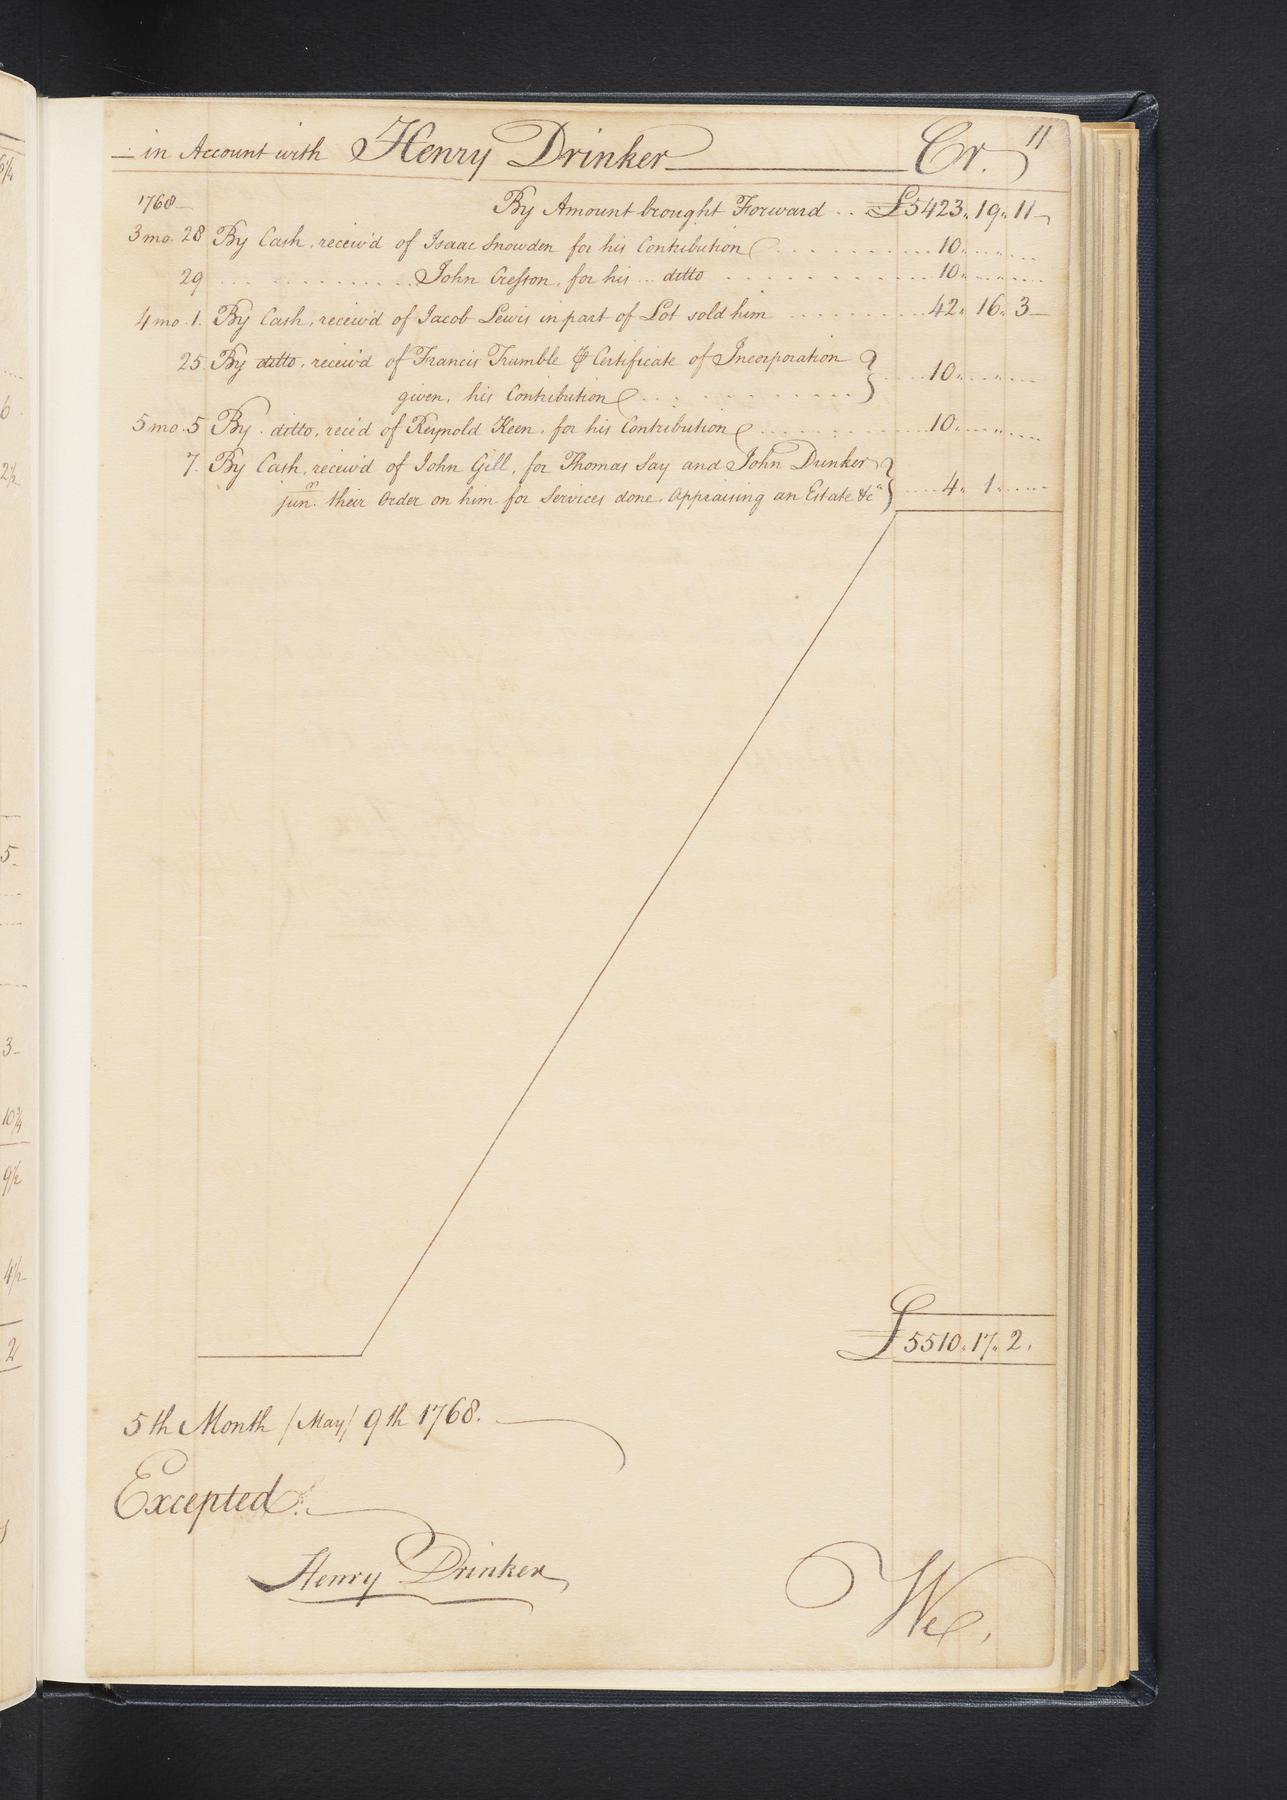 in Account with Henry Drinker Cr. 11
1768 By Amount brought Forward .. £5423,, 19,, 11
3 mo. 28 By Cash, receiv'd of Isaac Snowden for his Contribution 10,,
29 John Cresson, for his ... ditto 10,,
4 mo. 1. By Cash, receiv'd of Jacob Lewis in part of Lot sold him 42,, 16,, 3
25 By ditto, receiv'd of Francis Trumble ⅌ Certificate of Incorporation
given, his Contribution 10,,
5 mo. 5 By ditto, rece'd of Reynold Keen, for his Contribution 10,,
7. By Cash, receiv'd of John Gill, for Thomas Say and John Drinker
junr. their Order on him for Services done, Appraising an Estate &ca 4,, 1,,
£5510,, 17,, 2.
5th Month /May/ 9th 1768.
Excepted.
Henry Drinker
We,
6¼
6
2½
5
3
10¾
9½
4½
2